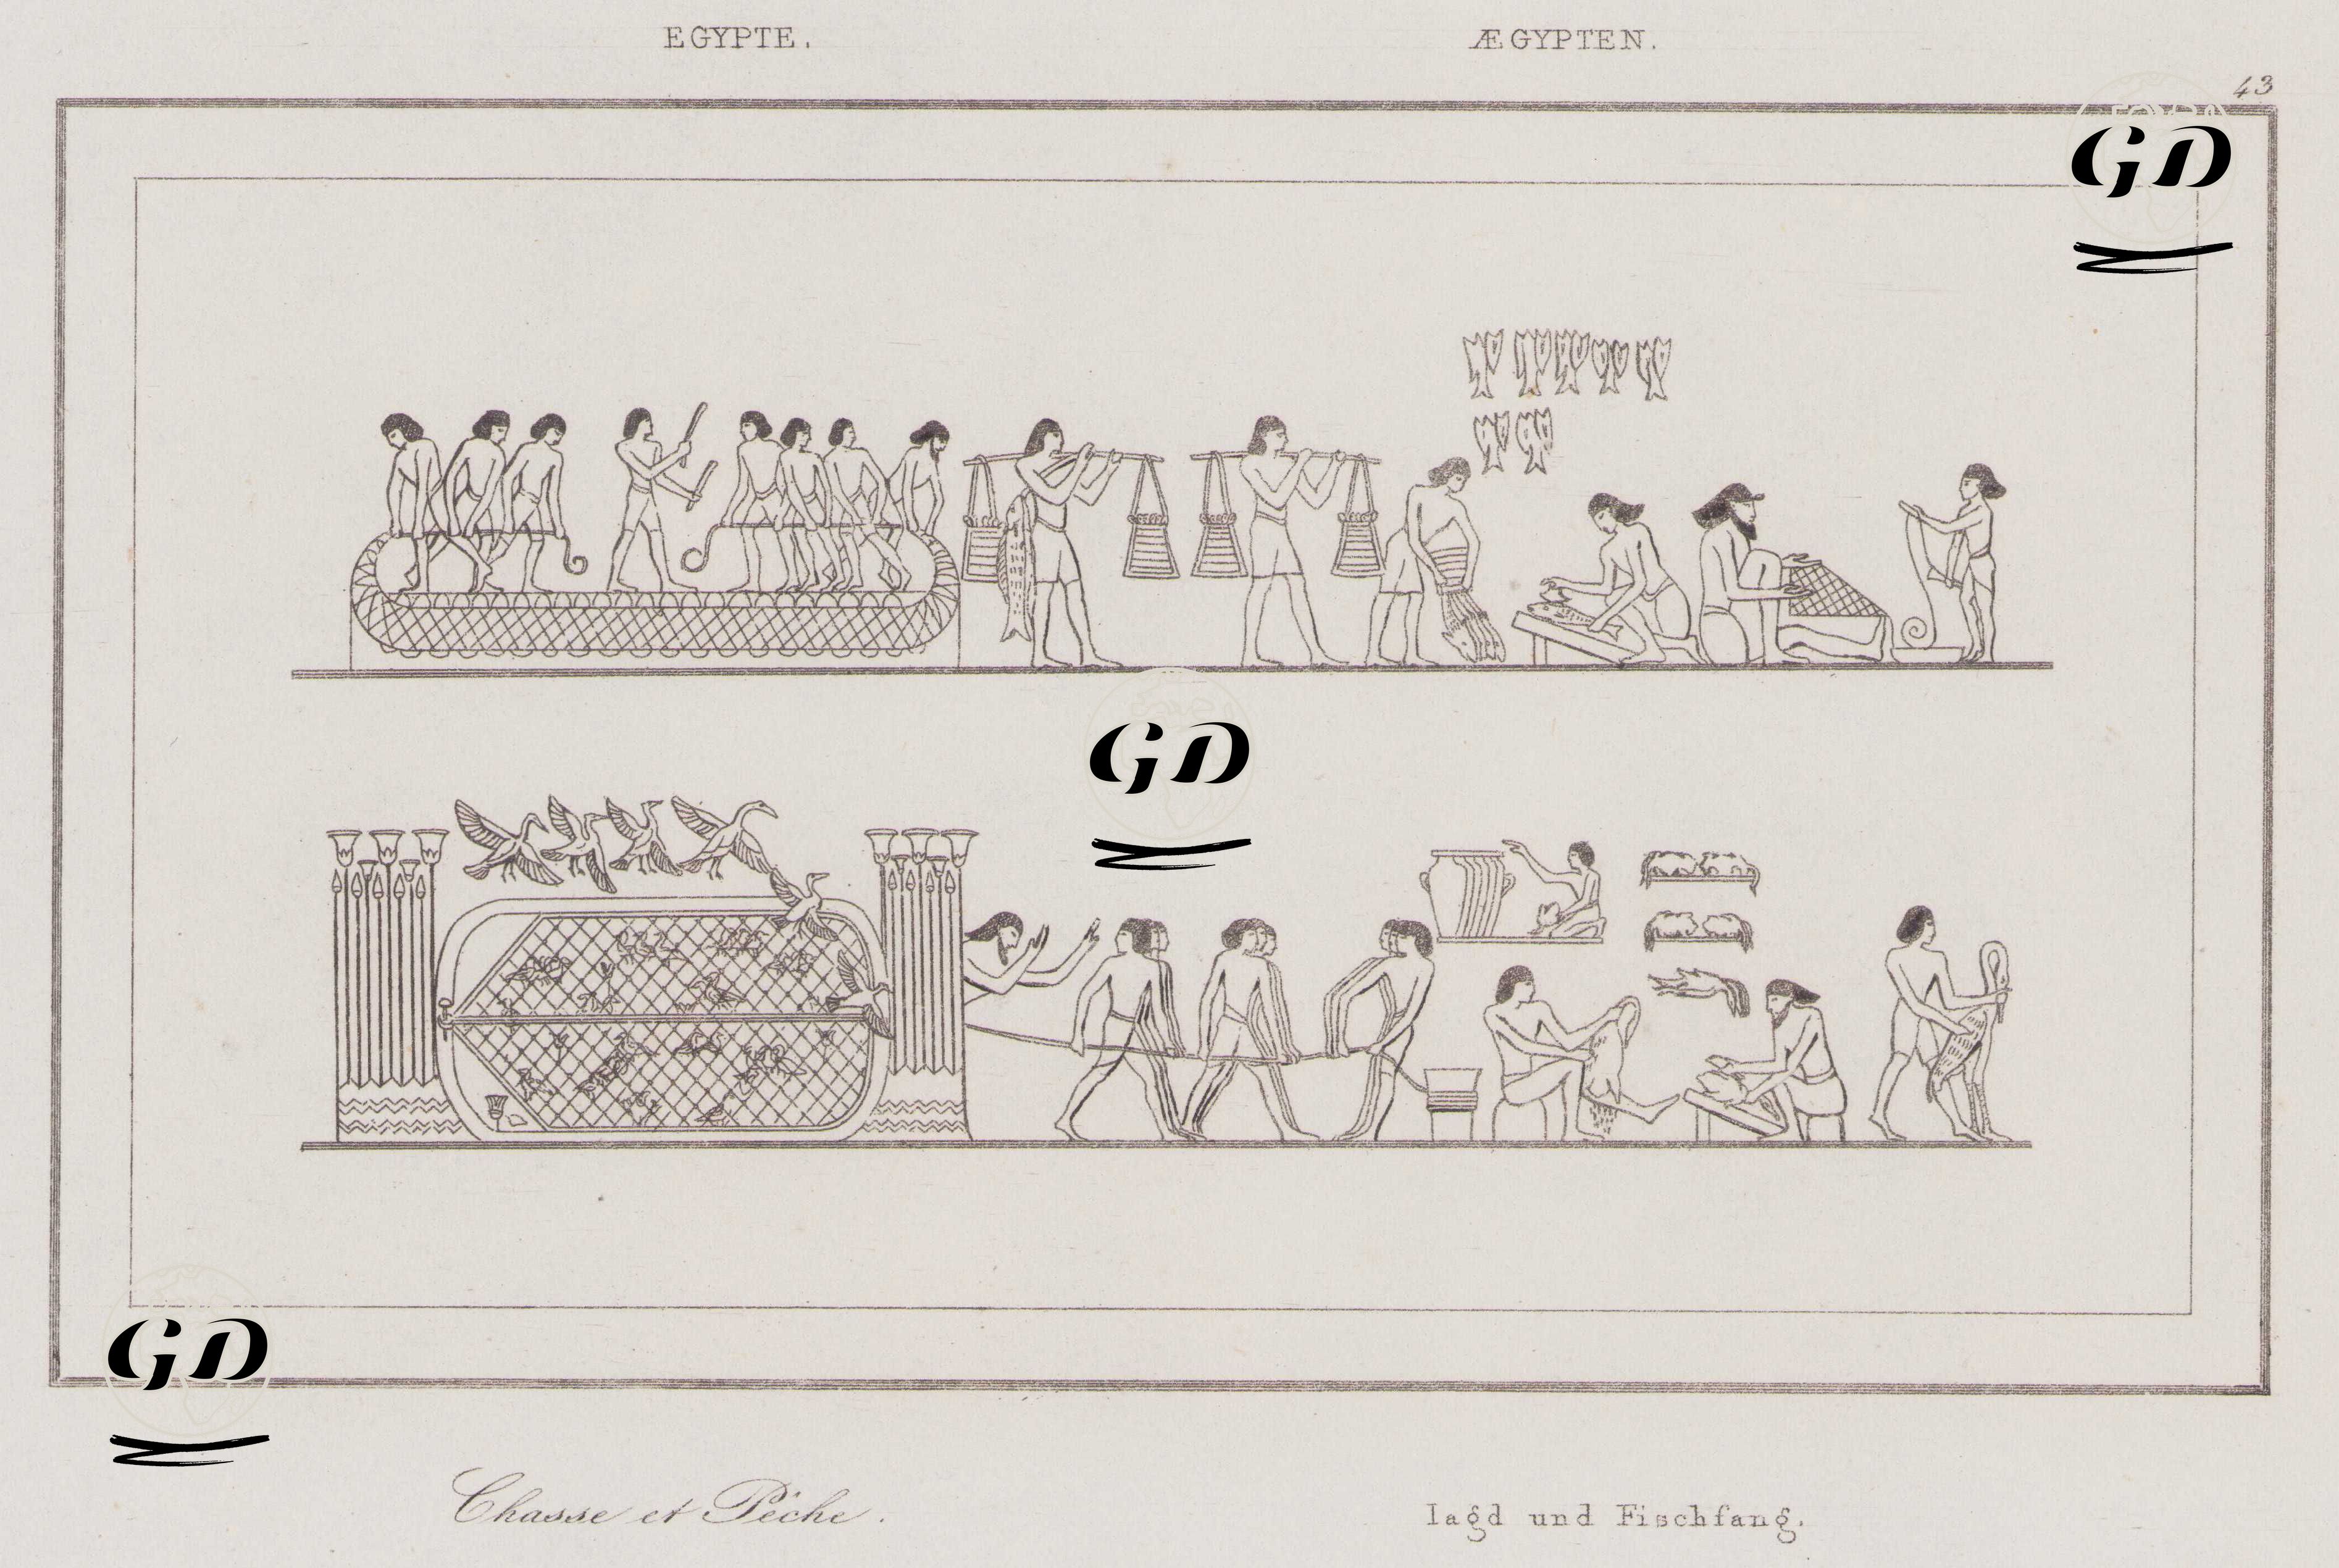 EGYPTE.
ÆGYPTEN.
43
GD
GD
GD
Chasse et Pêche.
Iagd und Fischfang.